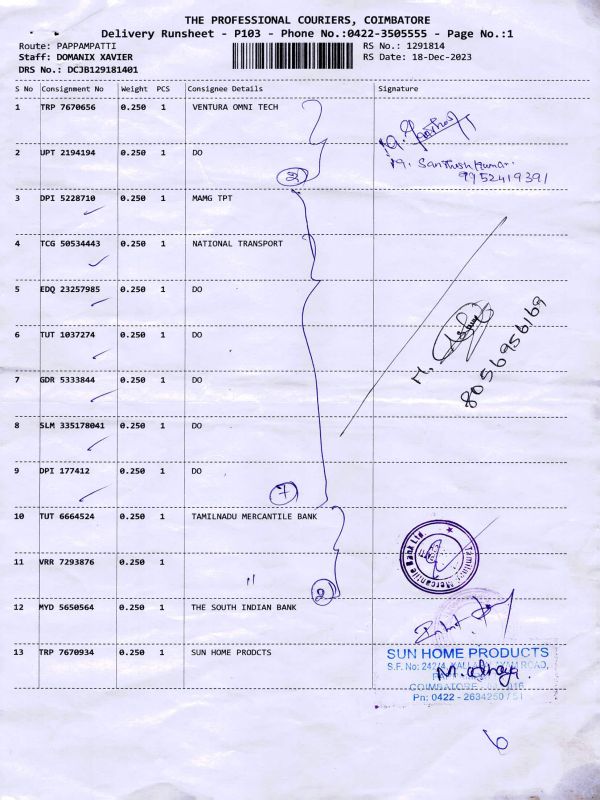 THE PROFESSIONAL COURIERS, COIMBATORE
Delivery Runsheet - P103 - Phone No.:0422-3505555 - Page No.:1
Route: PAPPAMPATTI RS No.: 1291814
Staff: DOMANIX XAVIER RS Date: 18-Dec-2023
DRS No.: DCJB129181401
S No Consignment No Weight PCS Consignee Details Signature
1 TRP 7670656 0.250 1 VENTURA OMNI TECH
2 UPT 2194194 0.250 1 DO
M. Santhosh Kumar.
9952419391
2
3 DPI 5228710 0.250 1 MAMG TPT
4 TCG 50534443 0.250 1 NATIONAL TRANSPORT
5 EDQ 23257985 0.250 1 DO
6 TUT 1037274 0.250 1 DO
M.
8056956169
7 GDR 5333844 0.250 1 DO
8 SLM 335178041 0.250 1 DO
9 DPI 177412 0.250 1 DO
7
10 TUT 6664524 0.250 1 TAMILNADU MERCANTILE BANK
Tamilnad Mercantile Bank Ltd.
11 VRR 7293876 0.250 1 "
2
12 MYD 5650564 0.250 1 THE SOUTH INDIAN BANK
13 TRP 7670934 0.250 1 SUN HOME PRODCTS
SUN HOME PRODUCTS
S.F. No: 242/4, ROAD,
COIMBATORE
Pn: 0422 - 2634250 / 51
6